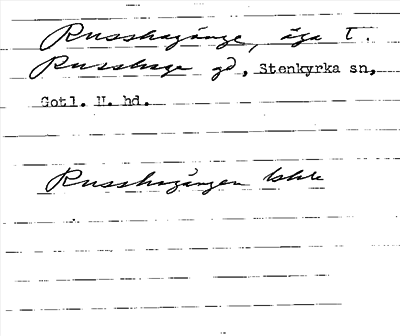 Russhagänge, äga t.
Russhage gd, Stenkyrka sn,
Gotl. N. hd.
Russhagängen